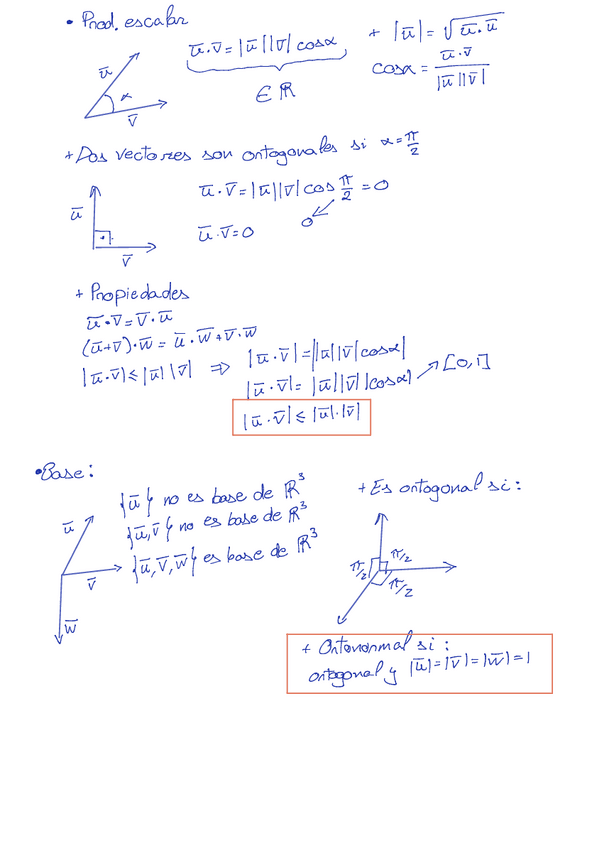 • Prod. escalar
u̅
α
v̅
u̅·v̅=|u̅||v̅| cosα
∈ ℝ
+ |u̅|=√(u̅·u̅)
cosα = u̅·v̅ / |u̅||v̅|
+ Dos vectores son ortogonales si α=π/2
u̅
v̅
u̅·v̅=|u̅||v̅| cos π/2 =0
0
u̅·v̅=0
+ Propiedades
u̅·v̅=v̅·u̅
(u̅+v̅)·w̅= u̅·w̅+v̅·w̅
|u̅·v̅|≤|u̅| |v̅| ⇒ |u̅·v̅|=||u̅||v̅|cosα|
|u̅·v̅|= |u̅||v̅||cosα| → [0,1]
|u̅·v̅|≤|u̅|·|v̅|
• Base:
u̅
v̅
w̅
{u̅} no es base de ℝ³
{u̅,v̅} no es base de ℝ³
{u̅,v̅,w̅} es base de ℝ³
+ Es ortogonal si:
π/2
π/2
π/2
+ Ortonormal si:
ortogonal y |u̅|=|v̅|=|w̅|=1